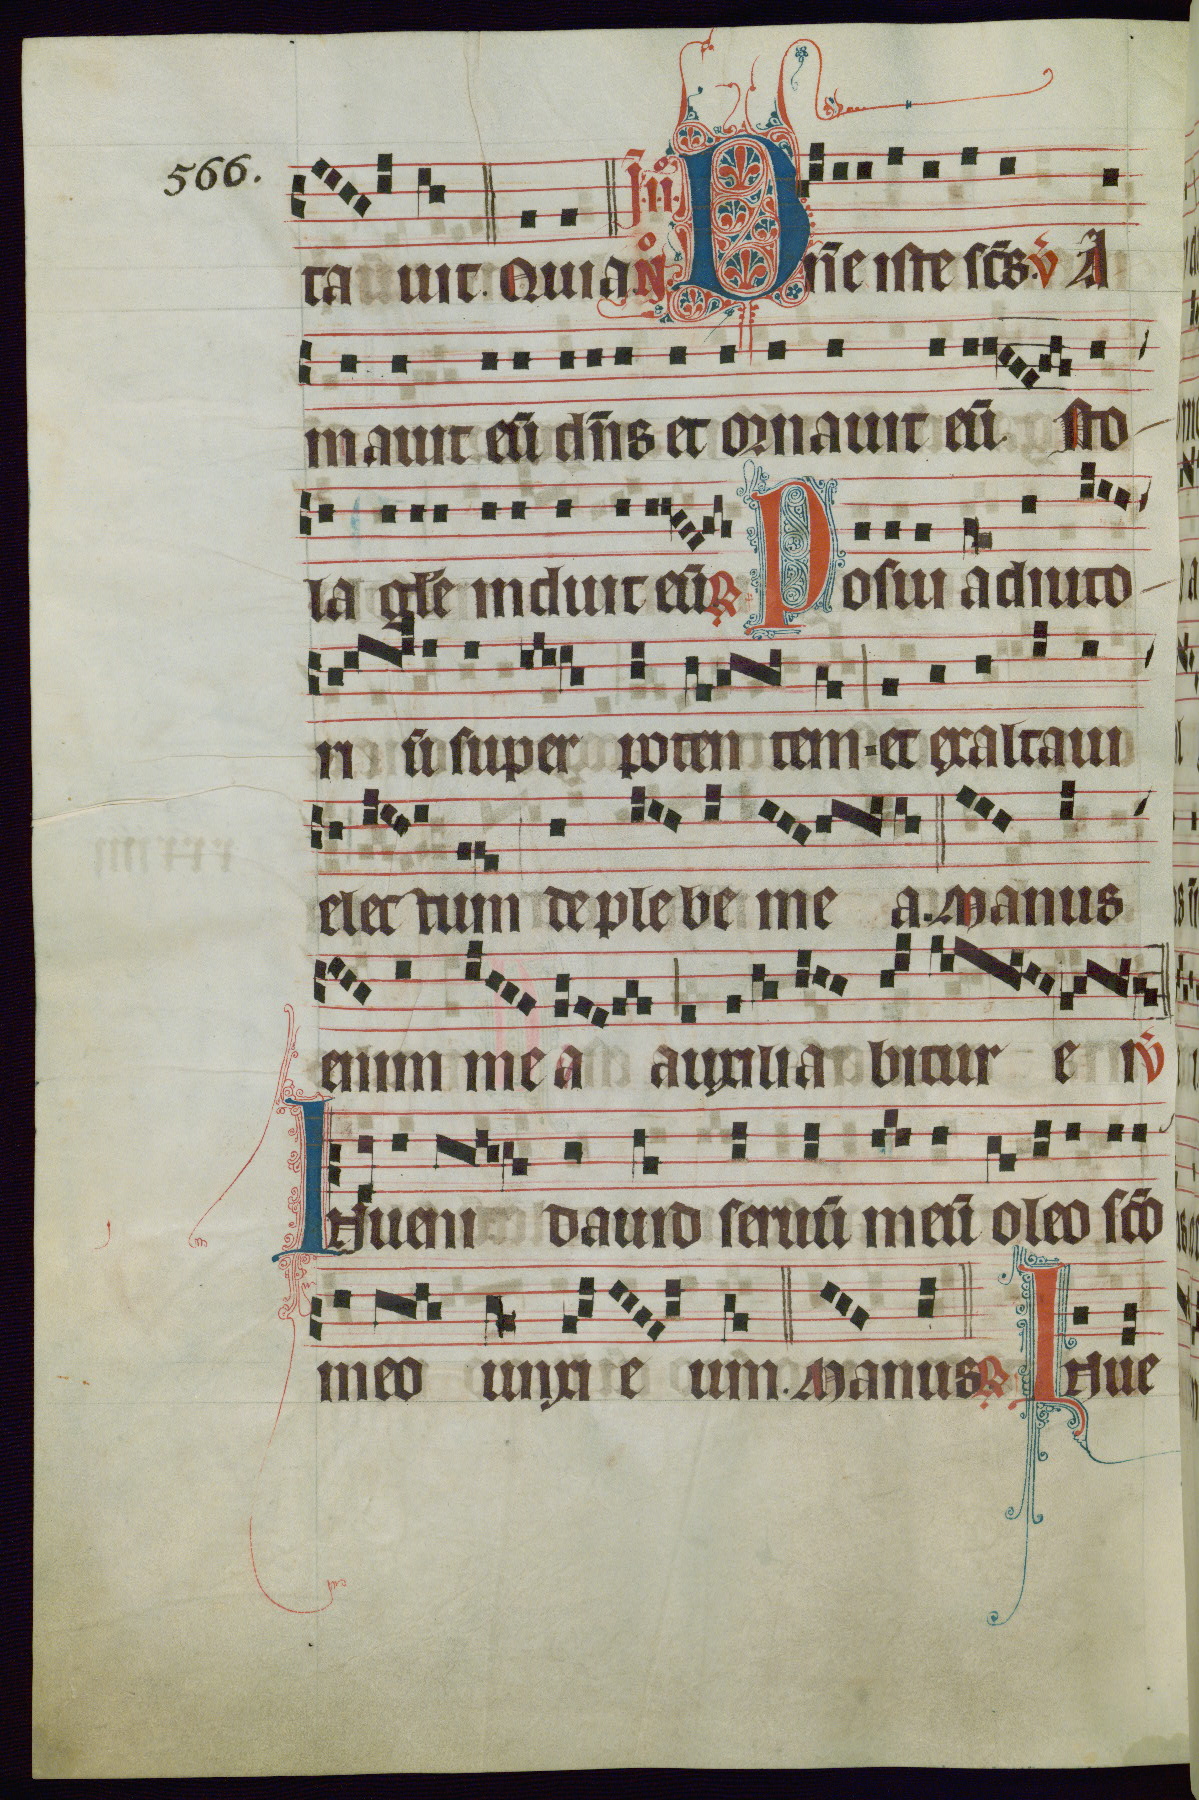 566.
ta uit. Quia. Jn .ii. N° Dn̄e iste sc̄s. v̄ A
mauit eū dn̄s et ornauit eū. sto
la gl̄e induit eū R Posui adiuto
ri ū super poten tem et exaltaui
elec tum de plebe me a. Manus
enim me a auxilia bitur e i v̄
Inueni dauid seruū meū oleo sc̄o
meo unxi e um. Manus R Inue